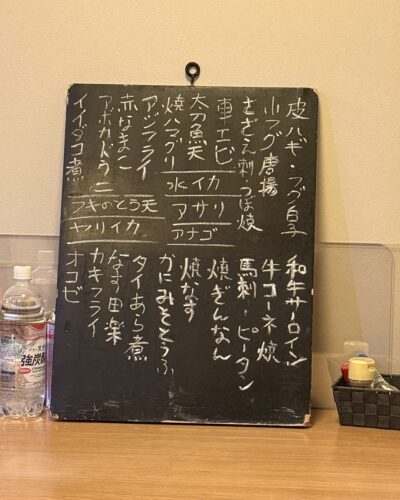 皮ハギ・フグ白子
小フグ唐揚
さざえ刺・つぼ焼
車エビ
太刀魚天
焼ハマグリ
アジフライ
赤なまこ
アボカドウニ
イイダコ煮
水イカ
アサリ
アナゴ
フキのとう天
ヤリイカ
和牛サーロイン
牛コーネ焼
馬刺・ピータン
焼ぎんなん
焼なす
かにみそとうふ
タイあら煮
なす田楽
カキフライ
オコゼ
強炭酸